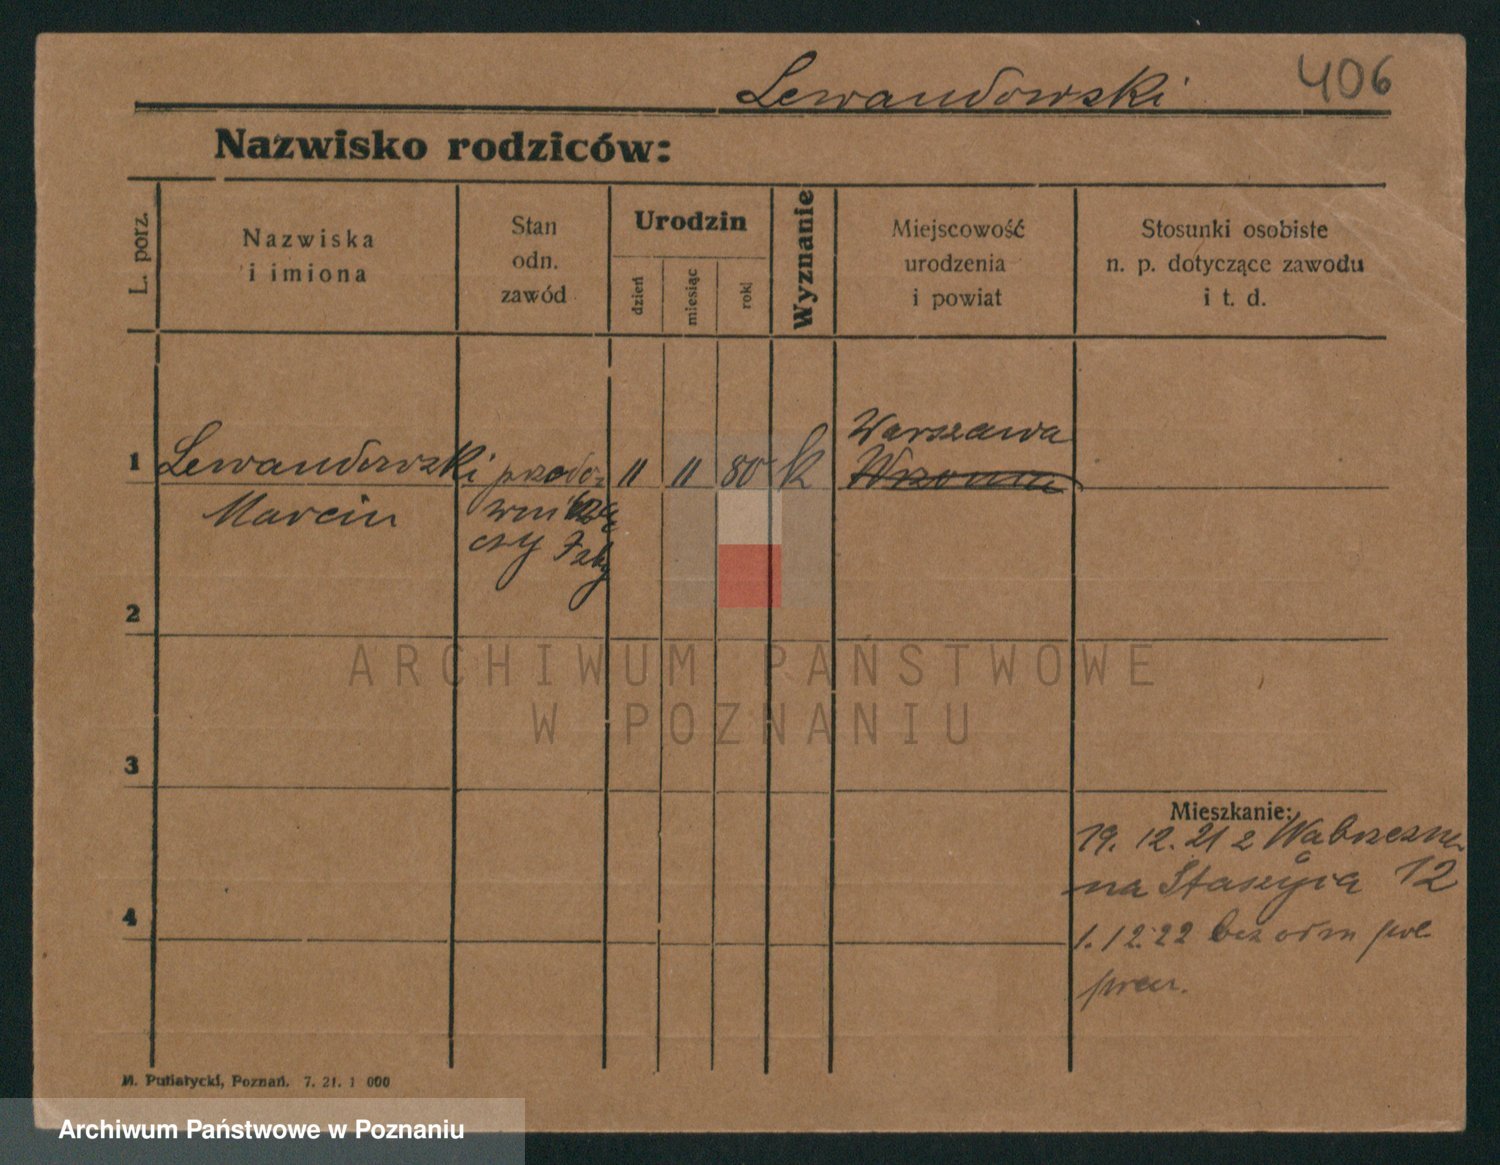 Lewandowski 406
Nazwisko rodziców:
L. porz.
Nazwiska
i imiona
Stan
odn.
zawód
Urodzin
dzień
miesiąc
rok
Wyznanie
Miejscowość
urodzenia
i powiat
Stosunki osobiste
n. p. dotyczące zawodu
i t. d.
1
Lewandowski
Marcin
11 11 80 k
Warszawa
2
ARCHIWUM PAŃSTWOWE
W POZNANIU
3
4
Mieszkanie:
19. 12. 21 z
na Staszyca 12
1. 12. 22 bez odm
M. Putiatycki, Poznań. 7. 21. 1 000
Archiwum Państwowe w Poznaniu